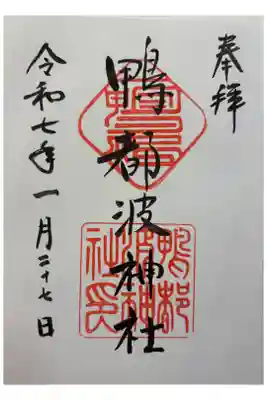 奉拝
鴨都波神社
令和七年一月二十七日
鴨都波神社印